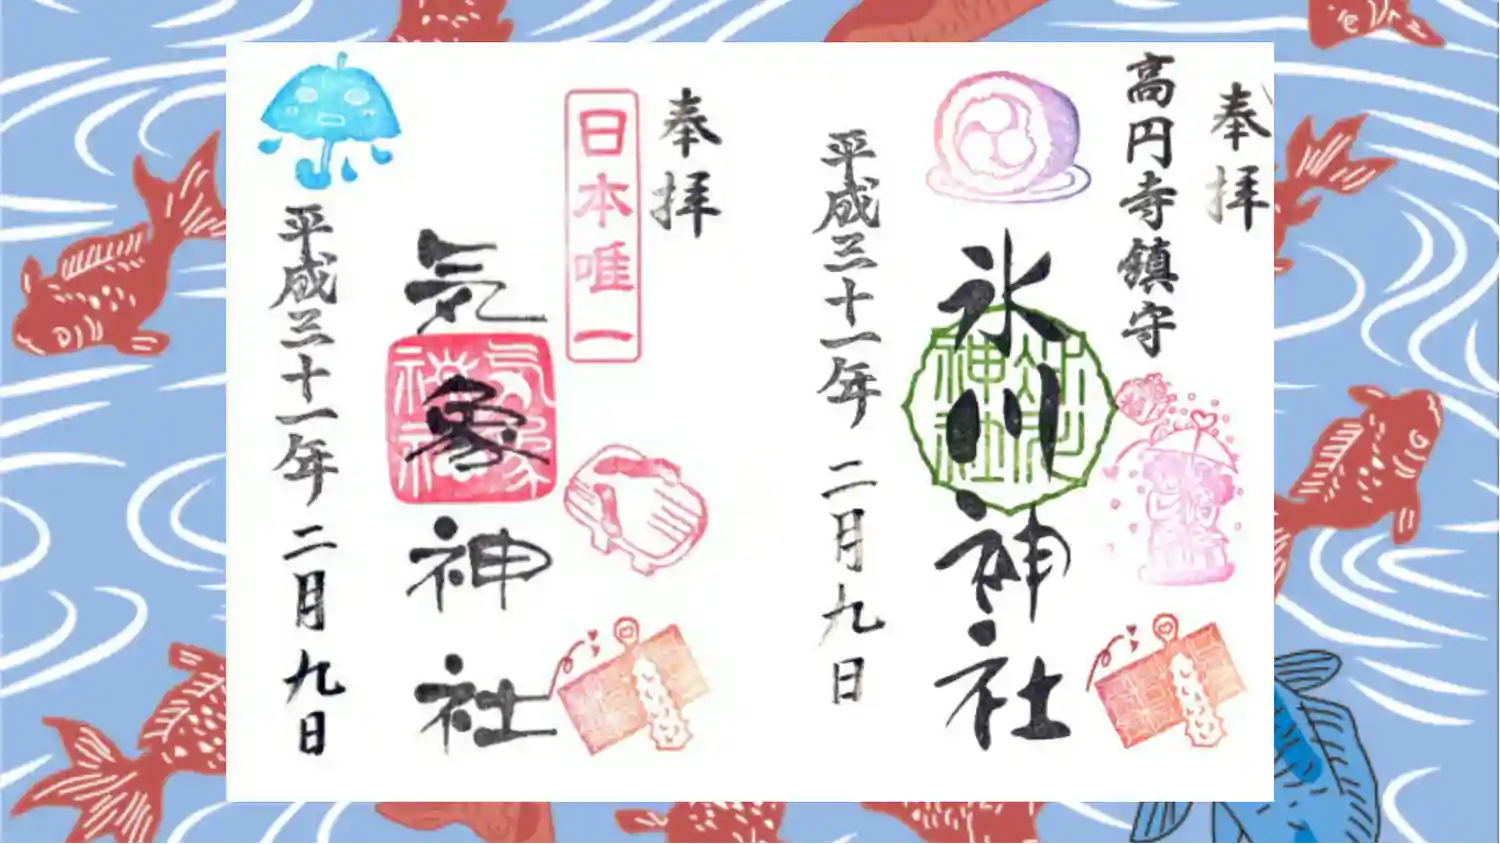 奉拝
高円寺鎮守
氷川神社
平成三十一年 二月九日
奉拝
日本唯一
気象神社
気象神社
平成三十一年 二月九日